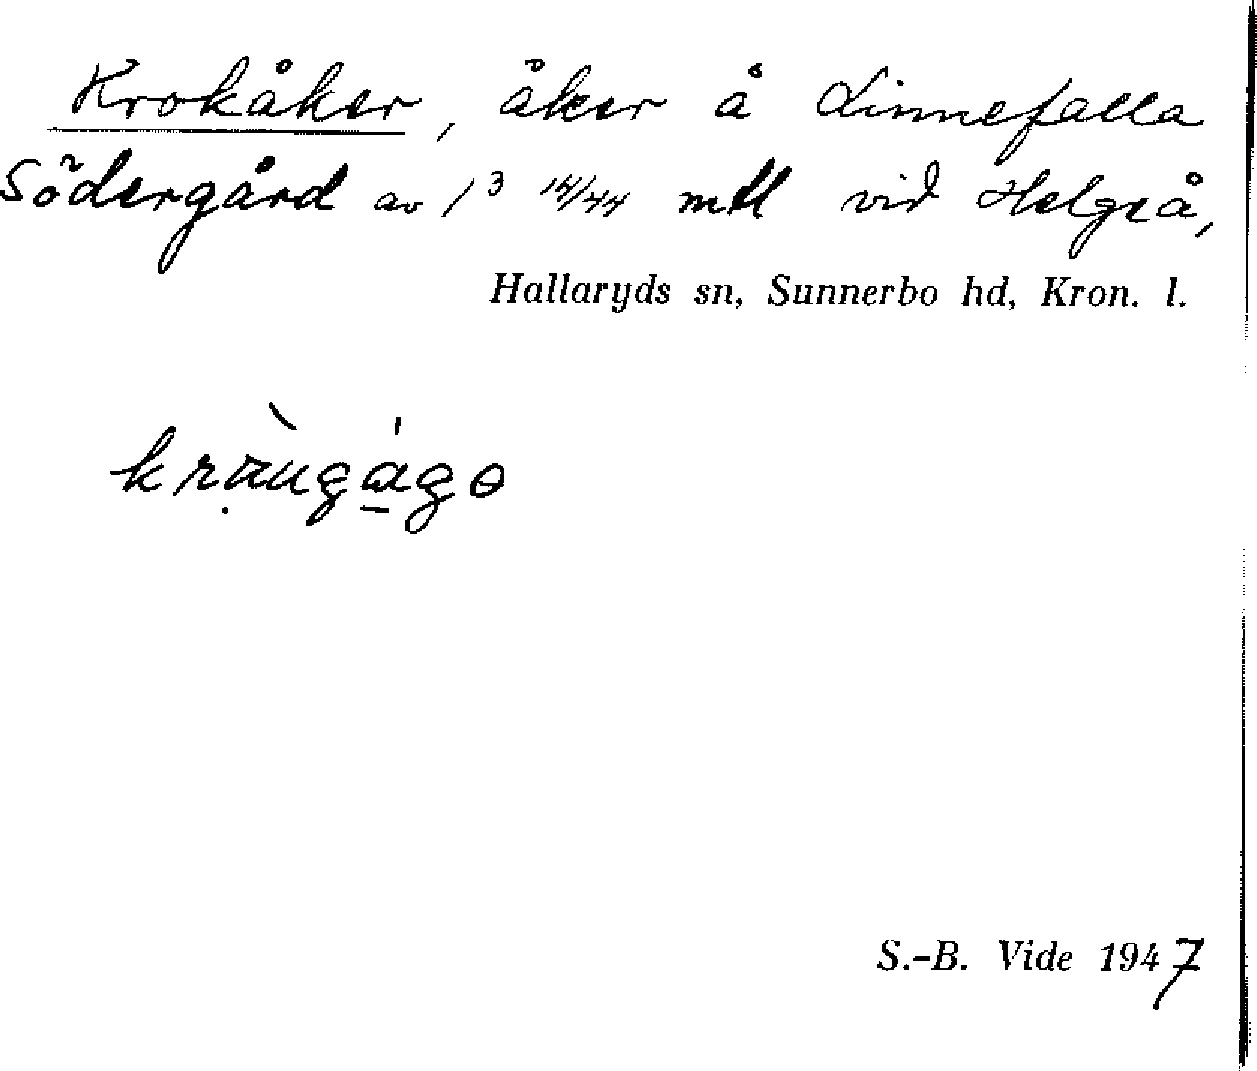 Krokåker, åker å Linnefalla
Södergård av 1³ 14/44 mtl vid Helgeå,
Hallaryds sn, Sunnerbo hd, Kron. l.
S.-B. Vide 1947